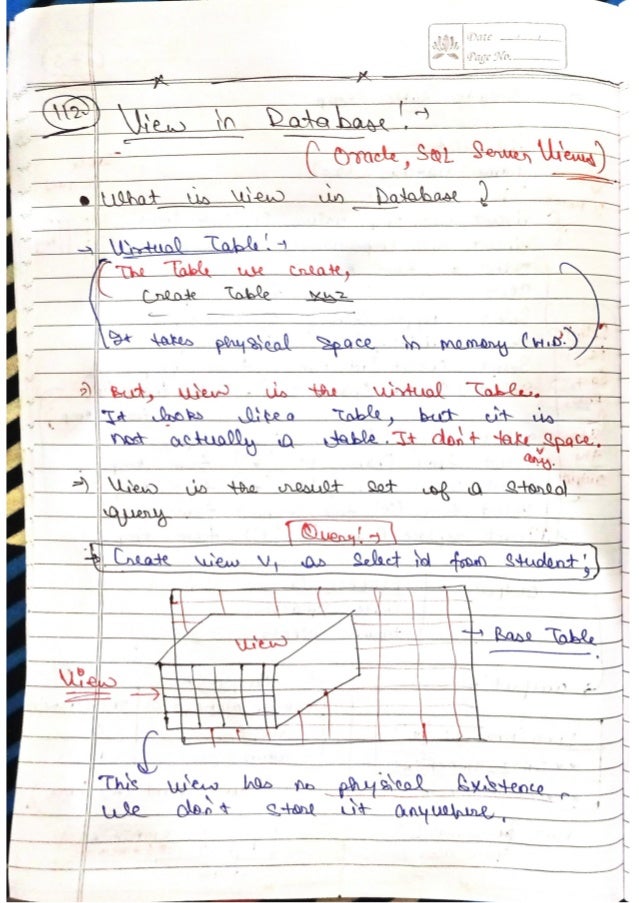 Date
Page No.
112.
View in Database!→
(Oracle, SQL Server Views)
• What is View in Database?
→ Virtual Table!→
(The Table we create,
Create Table xyz
It takes physical space in memory (H.D.))
⇒) But, View is the virtual Table.
It looks like a Table, but it is
not actually a table. It don't take any space.
⇒) View is the result set of a stored
query
Query!→
→ Create view V1 as Select id from Student;
View
→ Base Table
View →
This view has no physical Existence,
We don't store it anywhere.